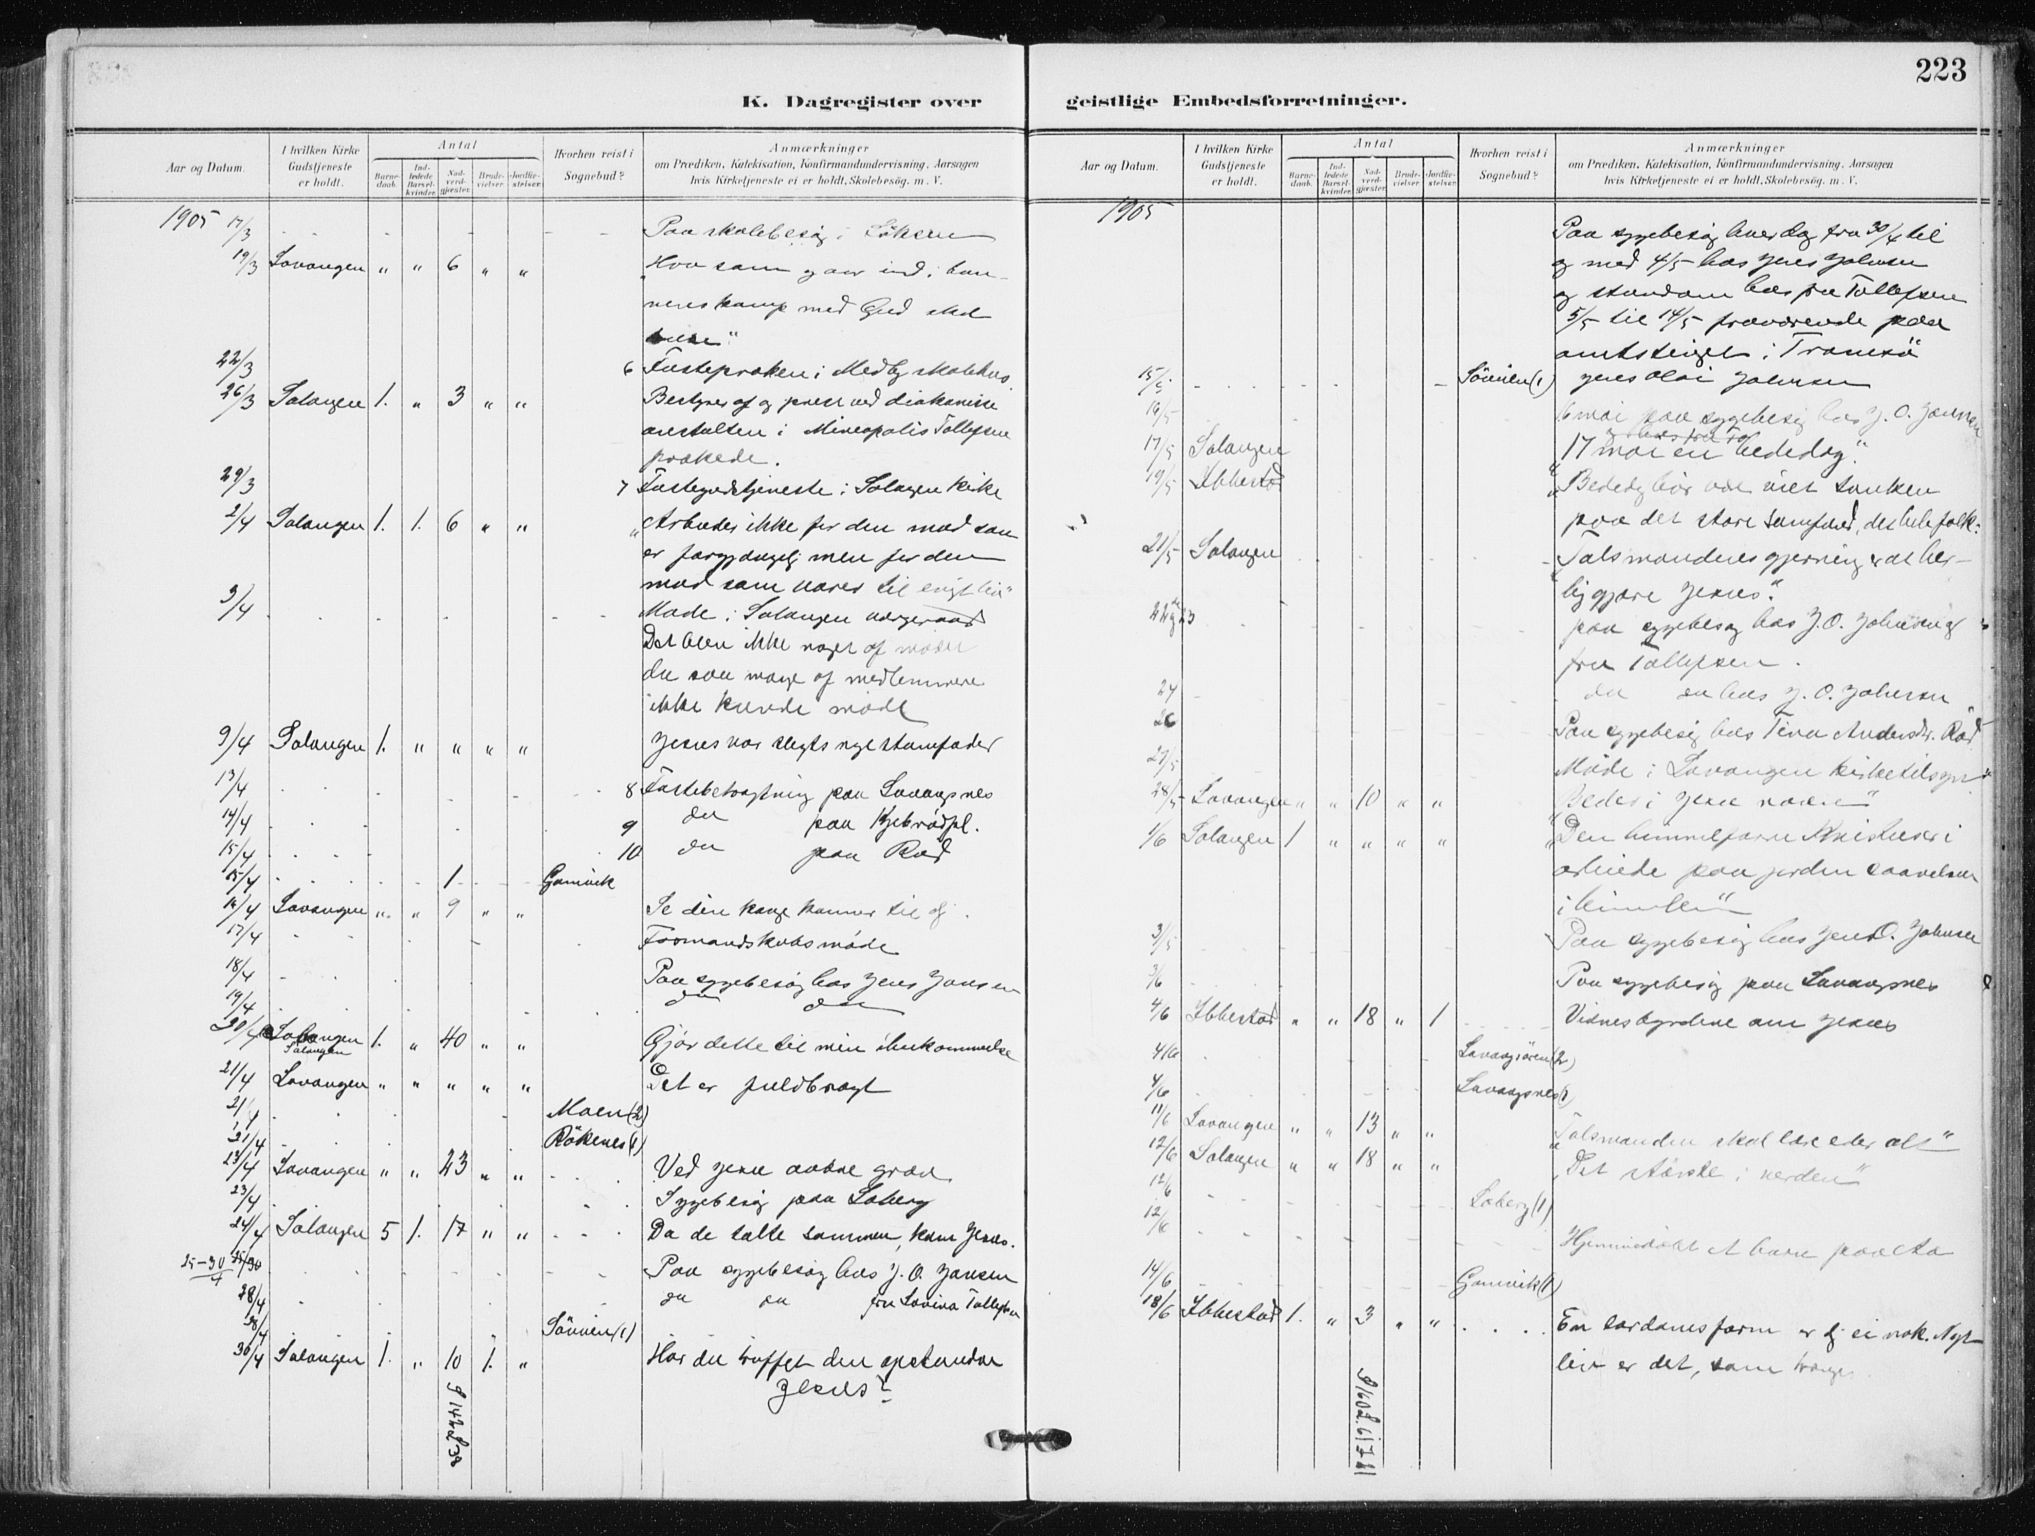 223
K. Dagregister over
geistlige Embedsforretninger.
Aar og Datum.
I hvilken Kirke Gudstjeneste er holdt.
Antal
Barnedaab.
Indledede Barselkvinder.
Nadverdgjæster.
Brudevielser.
Jordfæstelser.
Hvorhen reist i Sognebud?
Anmærkninger
om Prædiken, Katekisation, Konfirmandundervisning, Aarsagen
hvis Kirketjeneste ei er holdt, Skolebesøg. m. V.
1905 17/3 Paa skolebesøg i
19/3 Lavangen " " 6 " " "Hvo som gaar ind i bøn-
neres kamp med Gud skal
22/3 6 Fasteprøken i Medby skolehus.
26/3 Salangen 1. " 3 " " Bestyrer af og prest ved diakonisse
anstalten i Mineapolis Tollefsen
prækede.
29/3 7 Fastegudstjeneste i Salangen kirke
2/4 Salangen 1. 1. 6 " " "Arbeider ikke for den mad som
er forgjængelig men for den
mad som varer til evigt liv"
3/4 Møde i Salangen vergeraad
Det blev ikke noget af mødet
da saa mange af medlemmene
ikke kunde møde
9/4 Salangen 1. " " " " Jesus vor slegts nye stamfader
13/4 8 Fastebetragtning paa Lavangsnes
14/4 9 do paa
15/4 10 do paa Rød
15/4 1 Gamvik
16/4 Lavangen " " 9 " " Se din konge kommer til dig.
17/4 Formandskabsmøde
18/4 Paa sygebesøg hos Jens Jansen
19/4 do do
20/4 Salangen 1. " 40 " " Gjør dette til min ihukommelse
Salangen
21/4 Lavangen " " " " " Det er fuldbragt
21/4 Moen (2)
21/4 Røkenes (1)
23/4 Lavangen " " 23 " " Ved Jesu aabne grav
23/4 Sygebesøg paa Soberg
24/4 Salangen 5 1. 17 " " Da de talte sammen, kom Jesus.
25-30/4 Paa sygebesøg hos J. O. Jansen
28/4 do do fru Lovina Tollefsen
28/4 Sørvien (1)
30/4 Salangen 1. " 10 1. " Har du truffet den opstandne
Jesus?
1905
Paa sygebesøg hver dag fra 30/4 til
og med 4/5 hos Jens Johnsen
og stundom hos fru Tollefsen
5/5 til 14/5 fraværende paa
amtstinget i Tromsø
15/5 Sørvien (1) Jens Olai Johnsen
16/5 16 mai paa sygebesøg hos J. O. Jansen
17/5 Salangen "17 mai en bededag."
19/5 Ibbestad
paa det store samfund, det hele folk.
21/5 Salangen "Talsmandens gjerning er at her-
liggjøre Jesus."
22 og 23 paa sygebesøg hos J. O. Johnsen og
fru Tollefsen.
24 do do hos J. O. Johnsen
26 Paa sygebesøg hos Tina Andersdr. Rød
27/5 Møde i Lavangen kirketilsyn
28/5 Lavangen " " 10 " " "Beder i Jesu navn"
1/6 Salangen 1 " " " " "Den himmelfarne Kristus er i
arbeide paa jorden saavelsom
i himlen"
3/5 Paa sygebesøg hos Jens O. Johnsen
3/6 Paa sygebesøg paa Lavangsnes
4/6 Ibbestad " " 18 " 1 Vidnesbyrdene om Jesus
4/6 (2)
4/6 Lavangsnes (1)
11/6 Lavangen " " 13 " " "Talsmanden skal lære eder alt"
12/6 Salangen " " 18 " " "Det største i verden"
12/6 Soberg (1)
12/6 Hjemmedøbt et barn
14/6 Gamvik (1)
18/6 Ibbestad 1. " 3 " " En sædansform er ei nok. Nyt
liv er det, som